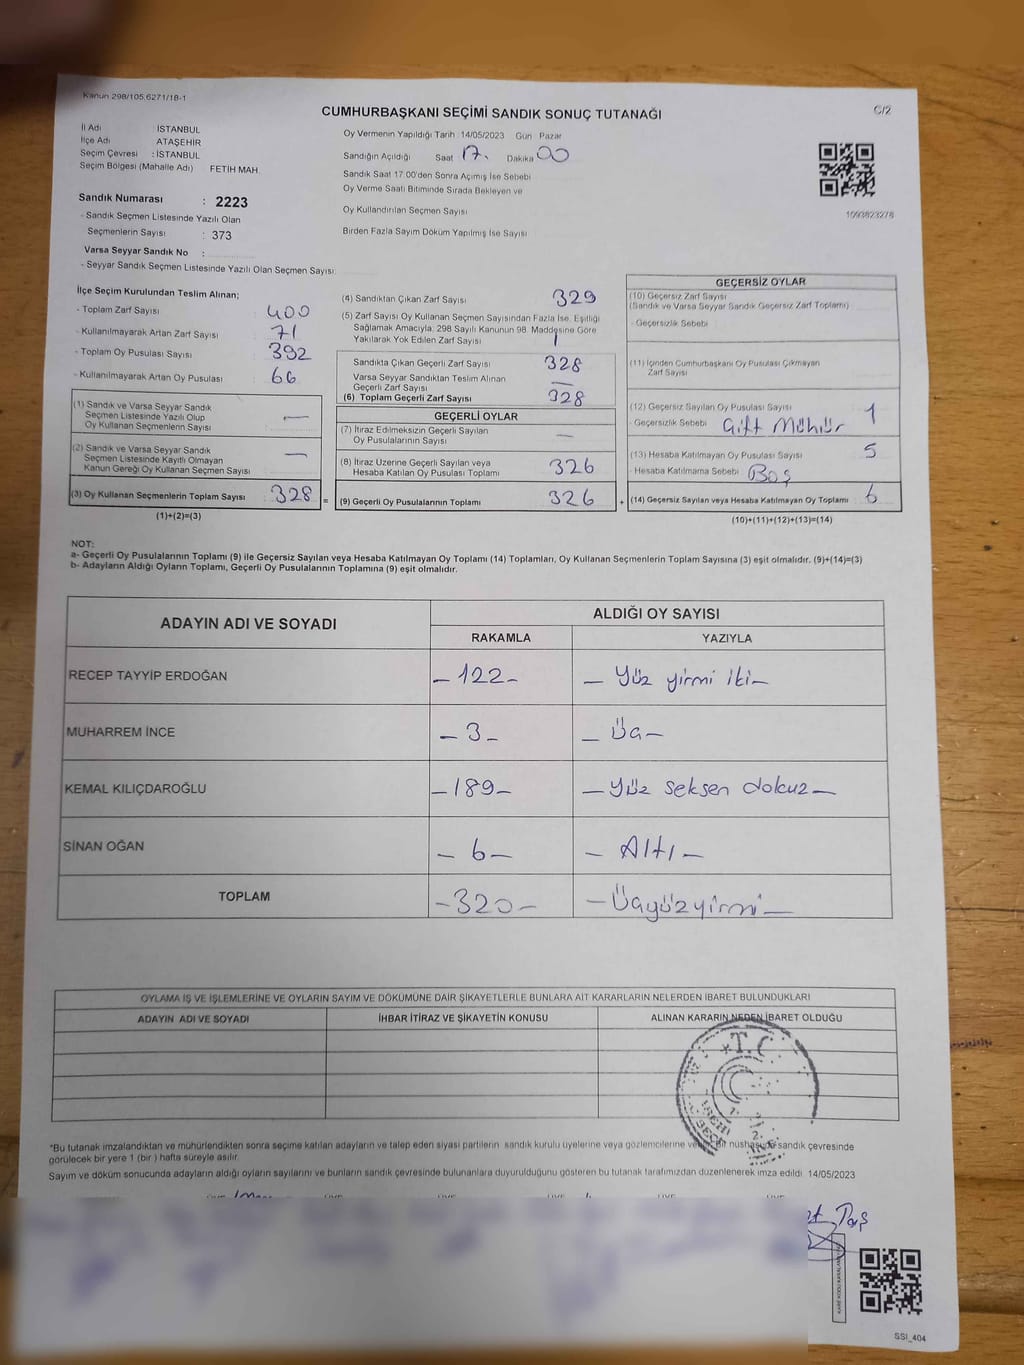 Kanun 298/105.6271/18-1
C/2
CUMHURBAŞKANI SEÇİMİ SANDIK SONUÇ TUTANAĞI
İl Adı İSTANBUL
İlçe Adı ATAŞEHİR
Seçim Çevresi : İSTANBUL
Seçim Bölgesi (Mahalle Adı) FETİH MAH.
Sandık Numarası : 2223
- Sandık Seçmen Listesinde Yazılı Olan
Seçmenlerin Sayısı : 373
Varsa Seyyar Sandık No :
- Seyyar Sandık Seçmen Listesinde Yazılı Olan Seçmen Sayısı:
Oy Vermenin Yapıldığı Tarih :14/05/2023 Gün Pazar
Sandığın Açıldığı Saat 17. Dakika 00
Sandık Saat 17:00'den Sonra Açımış İse Sebebi
Oy Verme Saati Bitiminde Sırada Bekleyen ve
Oy Kullandırılan Seçmen Sayısı
Birden Fazla Sayım Döküm Yapılmış İse Sayısı
1093823278
İlçe Seçim Kurulundan Teslim Alınan;
- Toplam Zarf Sayısı : 400
- Kullanılmayarak Artan Zarf Sayısı : 71
- Toplam Oy Pusulası Sayısı : 392
- Kullanılmayarak Artan Oy Pusulası : 66
(1) Sandık ve Varsa Seyyar Sandık
Seçmen Listesinde Yazılı Olup
Oy Kullanan Seçmenlerin Sayısı —
(2) Sandık ve Varsa Seyyar Sandık
Seçmen Listesinde Kayıtlı Olmayan
Kanun Gereği Oy Kullanan Seçmen Sayısı —
(3) Oy Kullanan Seçmenlerin Toplam Sayısı 328 =
(1)+(2)=(3)
(4) Sandıktan Çıkan Zarf Sayısı 329
(5) Zarf Sayısı Oy Kullanan Seçmen Sayısından Fazla İse, Eşitliği
Sağlamak Amacıyla, 298 Sayılı Kanunun 98. Maddesine Göre
Yakılarak Yok Edilen Zarf Sayısı 1
Sandıkta Çıkan Geçerli Zarf Sayısı 328
Varsa Seyyar Sandıktan Teslim Alınan
Geçerli Zarf Sayısı —
(6) Toplam Geçerli Zarf Sayısı 328
GEÇERLİ OYLAR
(7) İtiraz Edilmeksizin Geçerli Sayılan
Oy Pusulalarının Sayısı —
(8) İtiraz Üzerine Geçerli Sayılan veya
Hesaba Katılan Oy Pusulası Toplamı 326
(9) Geçerli Oy Pusulalarının Toplamı 326 +
GEÇERSİZ OYLAR
(10) Geçersiz Zarf Sayısı
(Sandık ve Varsa Seyyar Sandık Geçersiz Zarf Toplamı)
- Geçersizlik Sebebi
(11) İçinden Cumhurbaşkanı Oy Pusulası Çıkmayan
Zarf Sayısı
(12) Geçersiz Sayılan Oy Pusulası Sayısı 1
- Geçersizlik Sebebi Çift Mühür
(13) Hesaba Katılmayan Oy Pusulası Sayısı 5
- Hesaba Katılmama Sebebi Boş
(14) Geçersiz Sayılan veya Hesaba Katılmayan Oy Toplamı 6
(10)+(11)+(12)+(13)=(14)
NOT:
a- Geçerli Oy Pusulalarının Toplamı (9) ile Geçersiz Sayılan veya Hesaba Katılmayan Oy Toplamı (14) Toplamları, Oy Kullanan Seçmenlerin Toplam Sayısına (3) eşit olmalıdır. (9)+(14)=(3)
b- Adayların Aldığı Oyların Toplamı, Geçerli Oy Pusulalarının Toplamına (9) eşit olmalıdır.
ADAYIN ADI VE SOYADI ALDIĞI OY SAYISI
RAKAMLA YAZIYLA
RECEP TAYYİP ERDOĞAN – 122 – – Yüz yirmi iki –
MUHARREM İNCE – 3 – – Üç –
KEMAL KILIÇDAROĞLU – 189 – – Yüz seksen dokuz –
SİNAN OĞAN – 6 – – Altı –
TOPLAM – 320 – – Üçyüzyirmi –
OYLAMA İŞ VE İŞLEMLERİNE VE OYLARIN SAYIM VE DÖKÜMÜNE DAİR ŞİKAYETLERLE BUNLARA AİT KARARLARIN NELERDEN İBARET BULUNDUKLARI
ADAYIN ADI VE SOYADI İHBAR İTİRAZ VE ŞİKAYETİN KONUSU ALINAN KARARIN NEDEN İBARET OLDUĞU
T.C.
*Bu tutanak imzalandıktan ve mühürlendikten sonra seçime katılan adayların ve talep eden siyasi partilerin sandık kurulu üyelerine veya gözlemcilerine bir nüshası sandık çevresinde
görülecek bir yere 1 (bir ) hafta süreyle asılır.
Sayım ve döküm sonucunda adayların aldığı oyların sayılarını ve bunların sandık çevresinde bulunanlara duyurulduğunu gösteren bu tutanak tarafımızdan düzenlenerek imza edildi. 14/05/2023
Taş
SSI_404